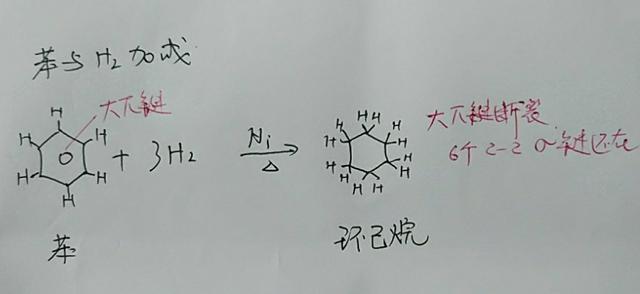 苯与H₂加成
大π键
H H H H H H
+ 3H₂
Ni
△
H H H H H H H H H H H H
大π键断裂
6个C-C σ键还在
苯
环己烷